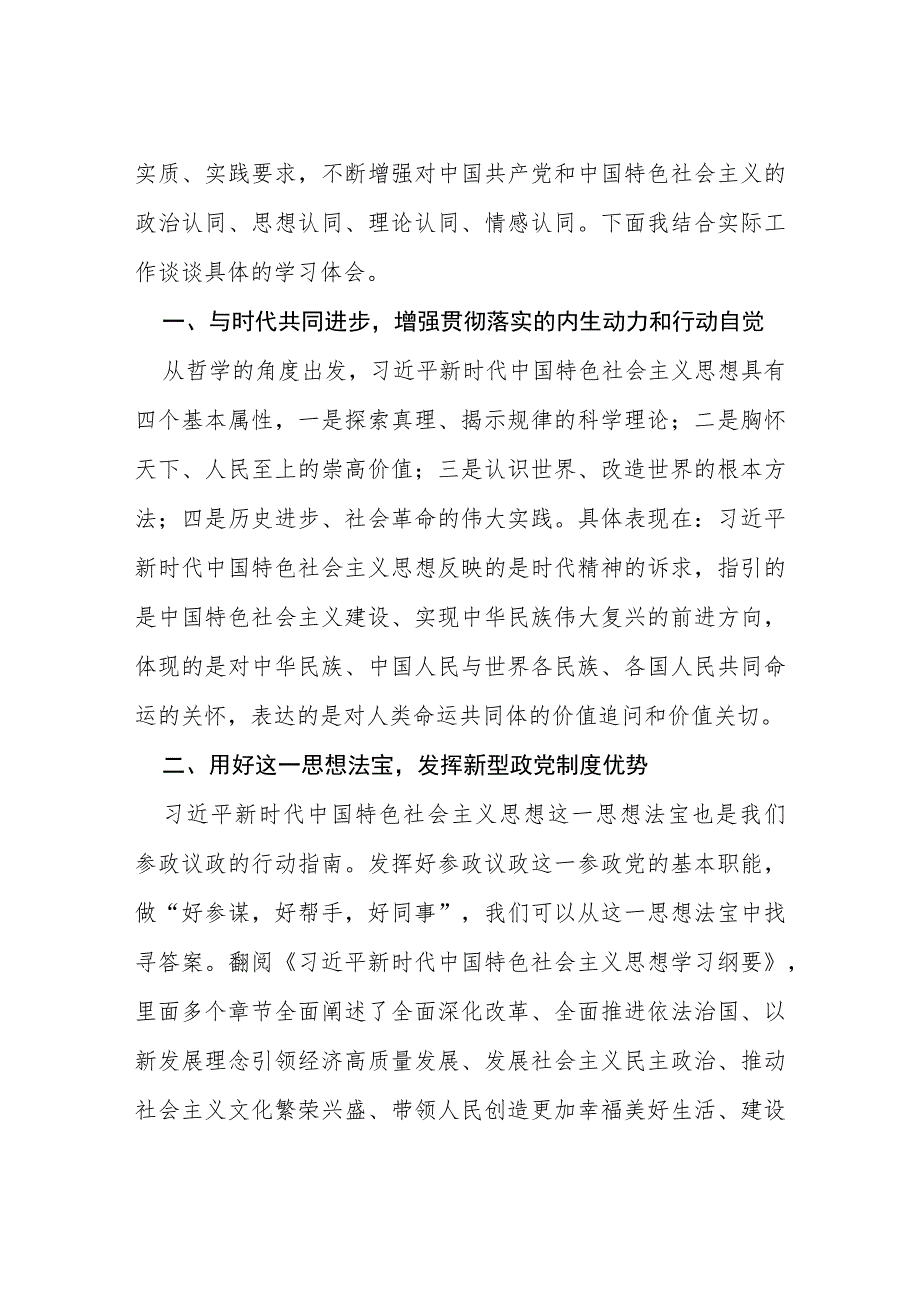 实质、实践要求，不断增强对中国共产党和中国特色社会主义的
政治认同、思想认同、理论认同、情感认同。下面我结合实际工
作谈谈具体的学习体会。
一、与时代共同进步，增强贯彻落实的内生动力和行动自觉
从哲学的角度出发，习近平新时代中国特色社会主义思想具有
四个基本属性，一是探索真理、揭示规律的科学理论；二是胸怀
天下、人民至上的崇高价值；三是认识世界、改造世界的根本方
法；四是历史进步、社会革命的伟大实践。具体表现在：习近平
新时代中国特色社会主义思想反映的是时代精神的诉求，指引的
是中国特色社会主义建设、实现中华民族伟大复兴的前进方向，
体现的是对中华民族、中国人民与世界各民族、各国人民共同命
运的关怀，表达的是对人类命运共同体的价值追问和价值关切。
二、用好这一思想法宝，发挥新型政党制度优势
习近平新时代中国特色社会主义思想这一思想法宝也是我们
参政议政的行动指南。发挥好参政议政这一参政党的基本职能，
做“好参谋，好帮手，好同事”，我们可以从这一思想法宝中找
寻答案。翻阅《习近平新时代中国特色社会主义思想学习纲要》，
里面多个章节全面阐述了全面深化改革、全面推进依法治国、以
新发展理念引领经济高质量发展、发展社会主义民主政治、推动
社会主义文化繁荣兴盛、带领人民创造更加幸福美好生活、建设